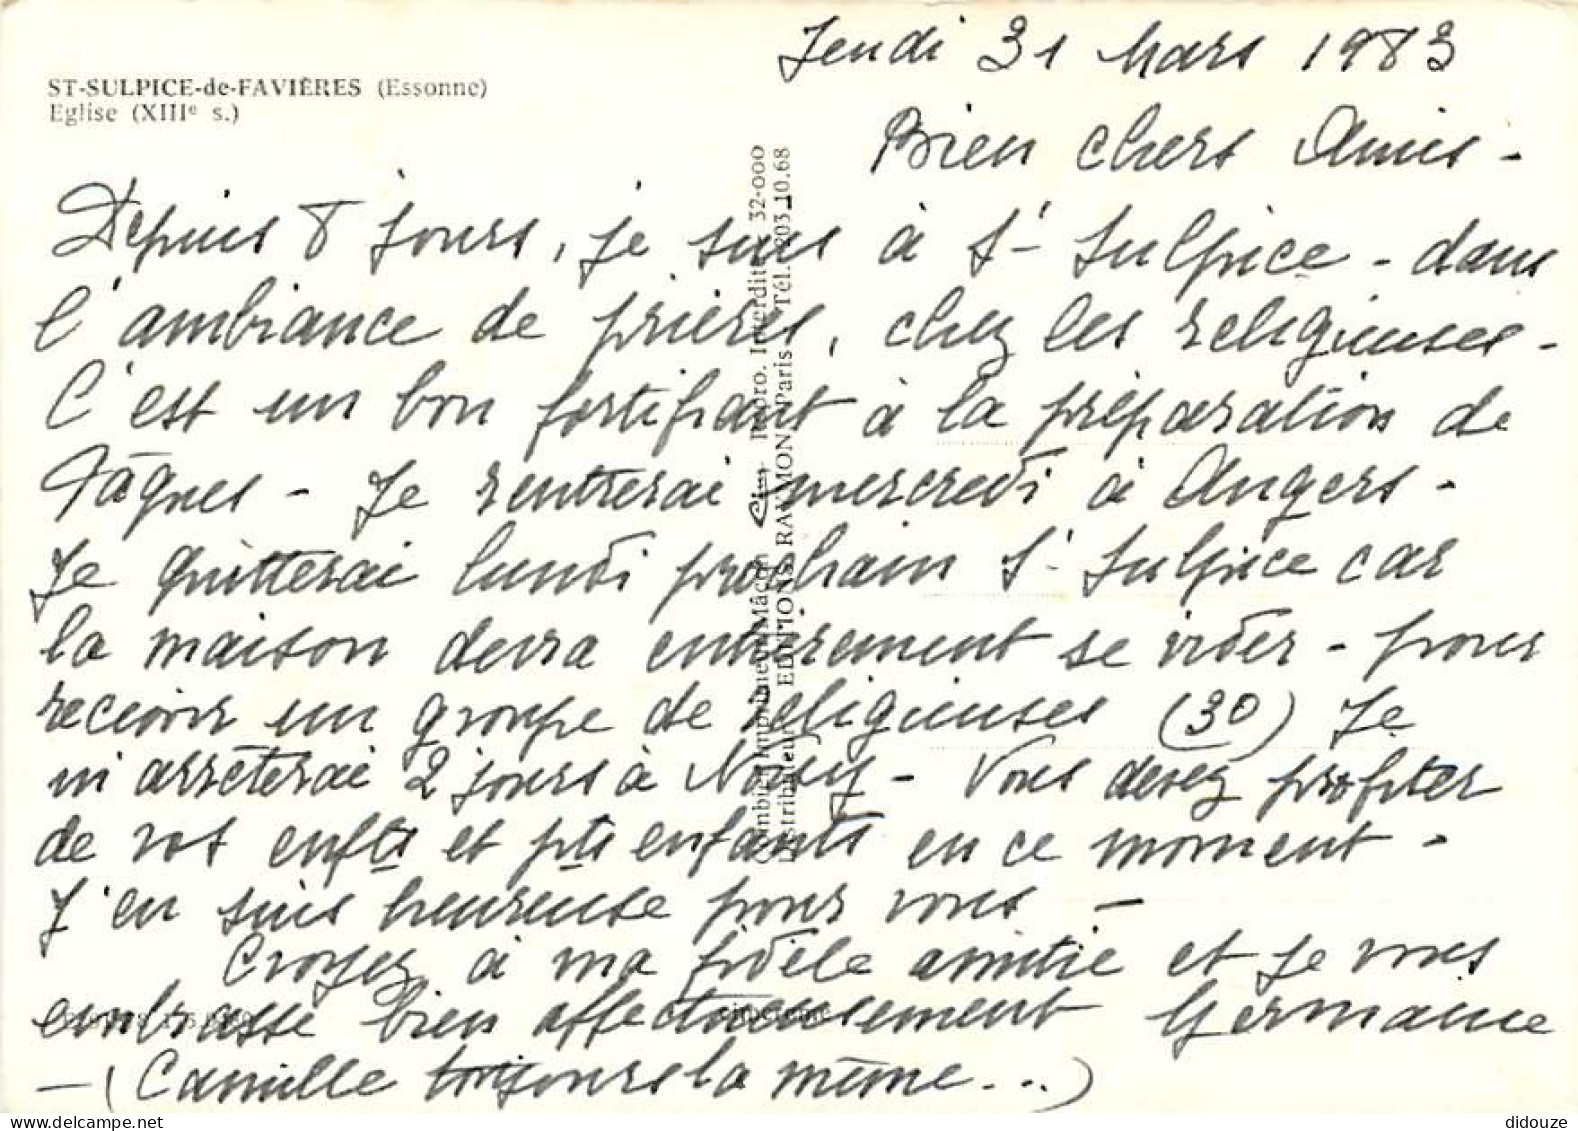 Jeudi 31 Mars 1983
ST-SULPICE-de-FAVIÈRES (Essonne)
Eglise (XIIIe s.)
Bien chers Amis -
Depuis 8 jours, je suis à St Sulpice - dans
l'ambiance de prières, chez les religieuses -
C'est un bon fortifiant à la préparation de
Pâques - Je rentrerai mercredi à Angers -
Je quitterai lundi prochain St Sulpice car
la maison devra entièrement se vider - pour
recevoir un groupe de religieuses (30) Je
m'arrêterai 2 jours à Noisy - Vous devez profiter
de vos enfts et pts enfants en ce moment -
J'en suis heureuse pour vous -
Croyez à ma fidèle amitié et je vous
embrasse bien affectueusement Germaine
- (Camille toujours la même...)
Combier Imprimeur Mâcon Cim Repro. Interdite 32-000
Distributeur EDITIONS RAYMON Paris Tél. 203 10.68
didouze